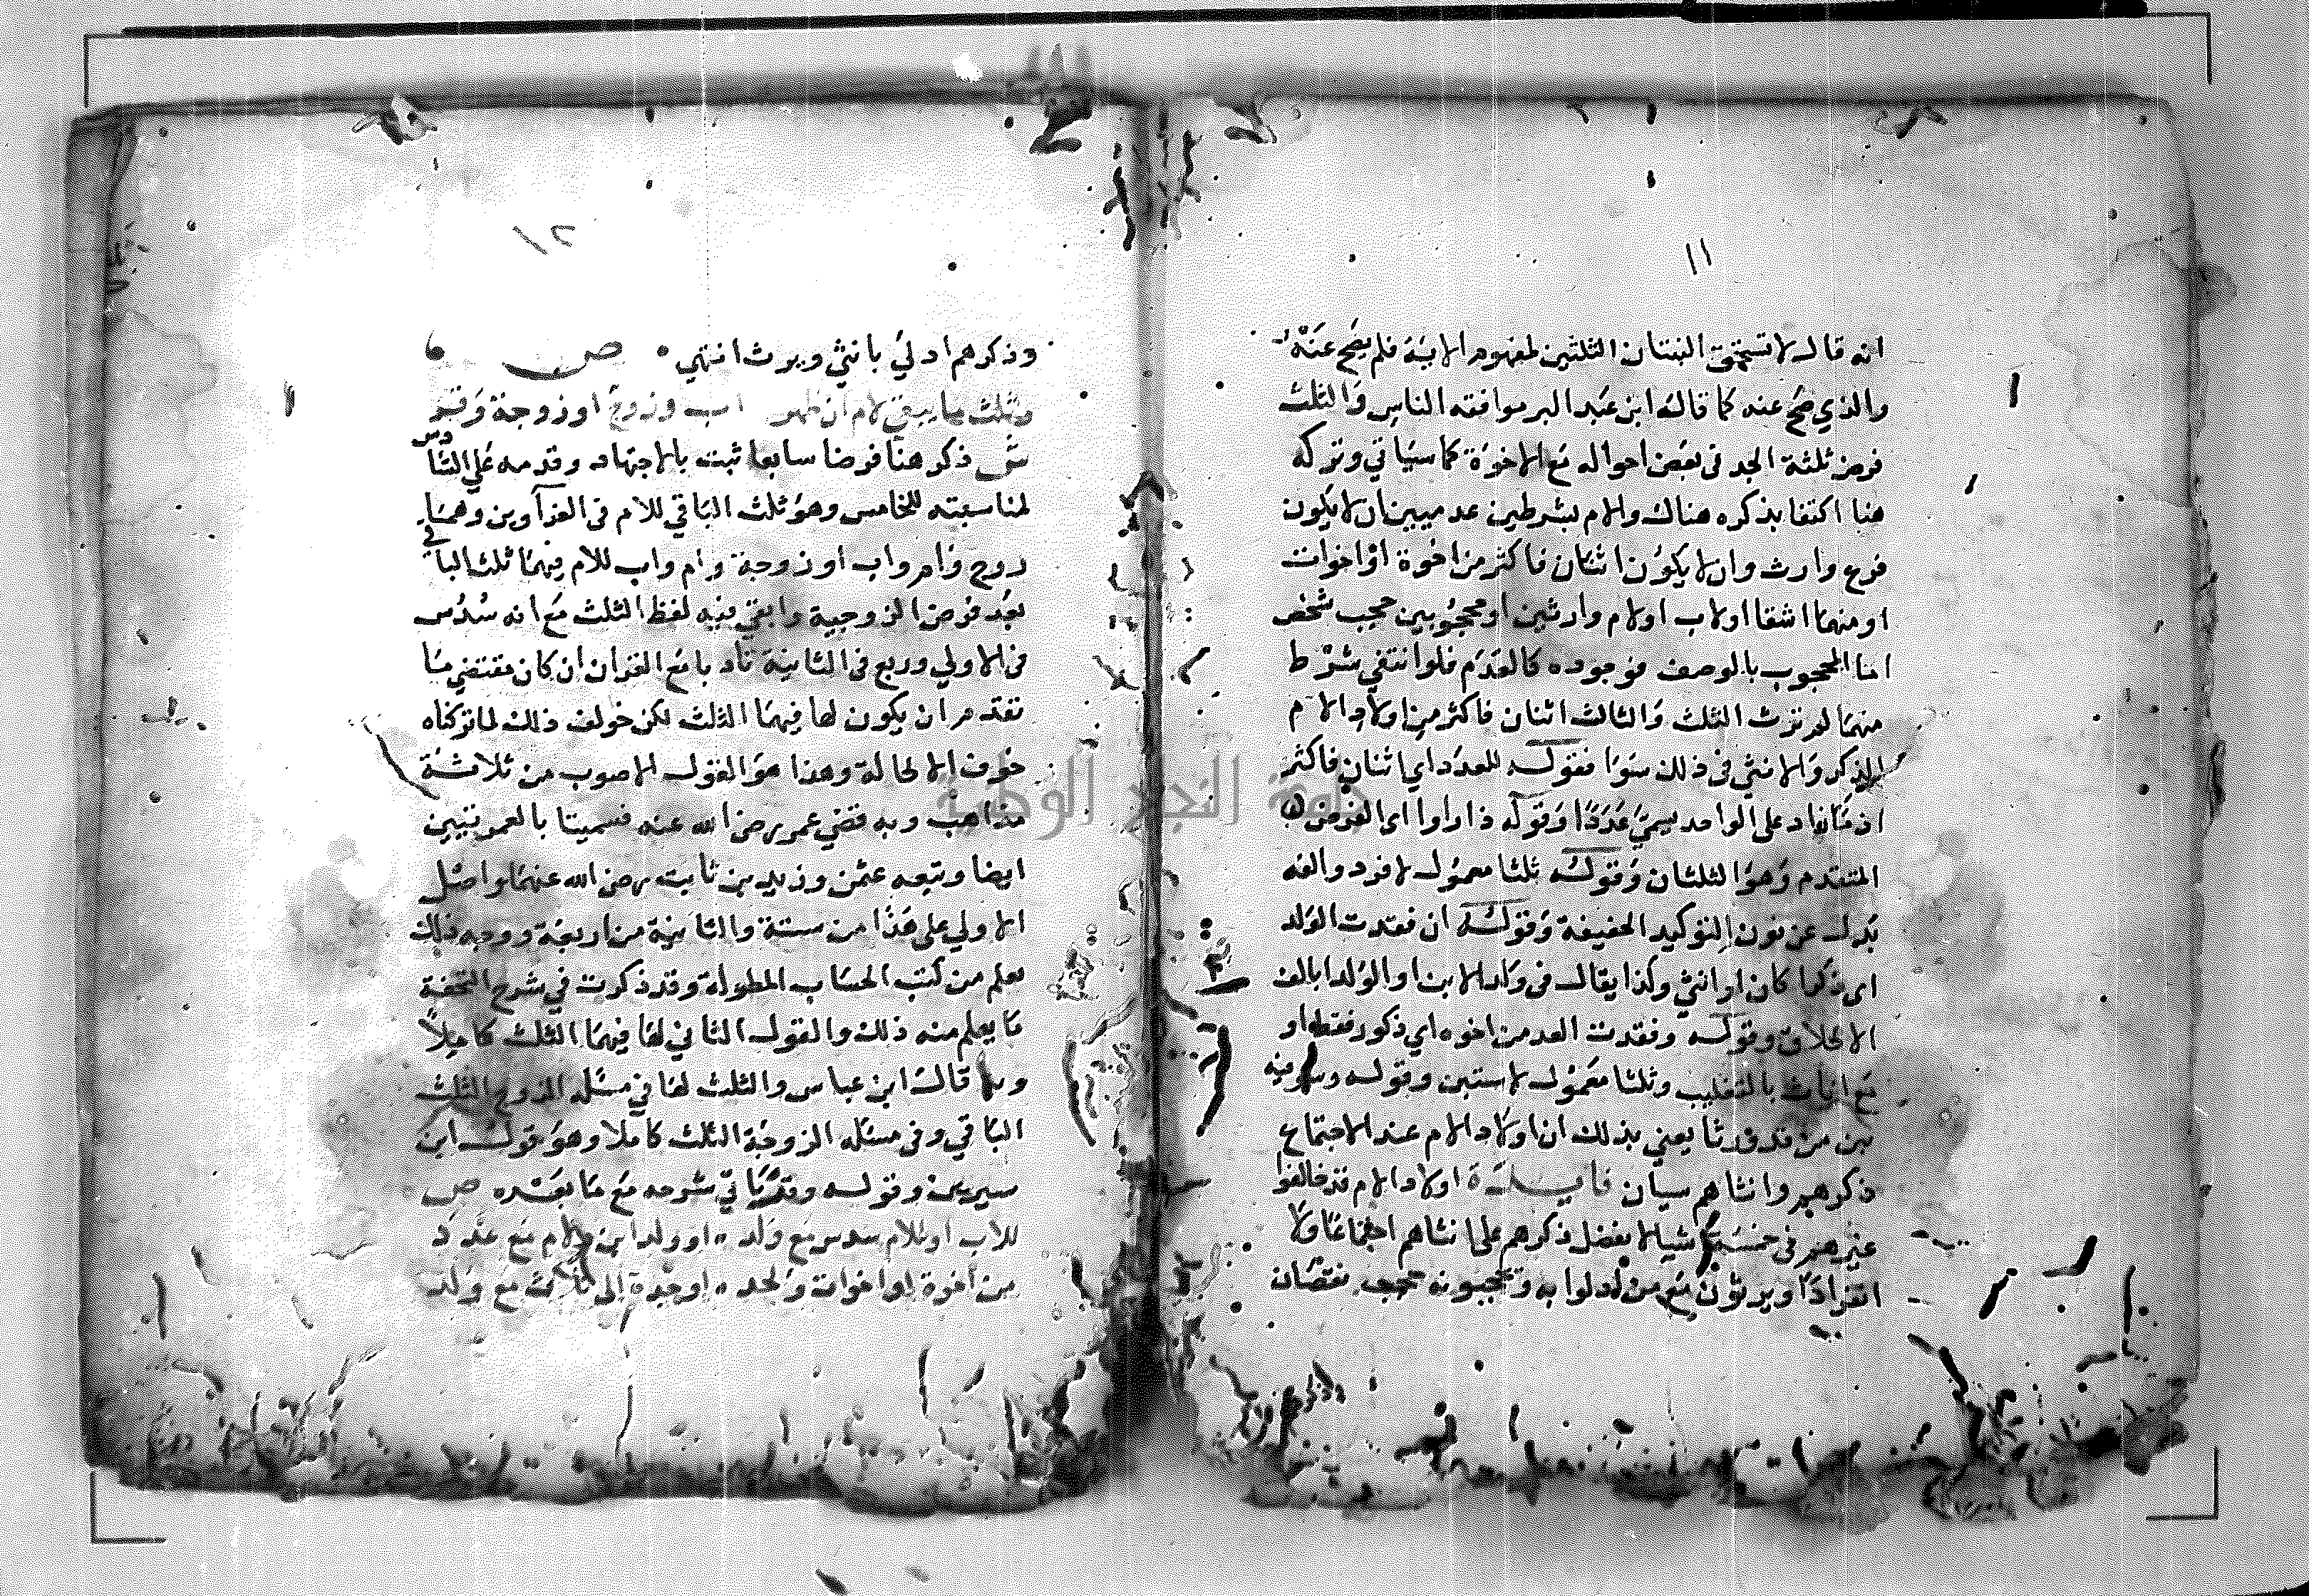 ١١
انه قال لا تستحق البنتان الثلثين لمفهوم الاية فلم يصح عنه
والذي صح عنه كما قاله ابن عبد البر موافقه الناس والثلث
فرض ثلثة الجد فى بعض احواله مع الاخوة كما سياتي وتركه
هنا اكتفا بذكره هناك والام بشرطين عدميين ان لا يكون
فرع وارث وان لا يكون اثنان فاكثر من اخوة او اخوات
او منهما اشقا او لاب او لام وارثين او محجوبين حجب شخص
اما المحجوب بالوصف فوجوده كالعدم فلو انتفي شرط
منهما لم ترث الثلث والثالث اثنان فاكثر من اولاد الام
الذكر والانثي فى ذلك سوا فقوله للعدد اي اثنان فاكثر
اذ ما زاد على الواحد يسمي عددا وقوله ذا اراوا اى الفرض
المتقدم وهو الثلثان وقوله ثلثا معمول لافرد والفه
بدل عن نون التوكيد الخفيفة وقوله ان فقدت الولد
اى ذكرا كان او انثي وكذا يقال فى ولد الابن او الولدا بالف
الاطلاق وقوله وفقدت العد من اخوه اي ذكور فقط او
مع اناث بالتغليب وثلثا معمول لاستبن وقوله وسو فيه
بين من قد ورثا يعني بذلك ان اولاد الام عند الاجتماع
ذكرهم وانثاهم سيان فايدة اولاد الام قد خالفوا
غيرهم فى خمسة اشيا لا يفضل ذكرهم على انثاهم اجتماعا ولا
انفرادا ويرثون مع من ادلوا به وتحجبونه حجب نقصان
١٢
وذكرهم ادلي بانثي ويرث انتهي ص
وثلث ما يبقي لام ان ظهر اب وزوج او زوجة
ش ذكر هنا فرضا سابعا ثبت بالاجتهاد وقدمه علي السادس
لمناسبته للخامس وهو ثلث الباقي للام فى الغراوين وهما
زوج وام واب او زوجة وام واب للام فيهما ثلث الباقي
بعد فرض الزوجية وابقي فيه لفظ الثلث مع انه سدس
فى الاولي وربع فى الثانية تادبا مع القران ان كان مقتضي ما
تقدم ان يكون لها فيهما الثلث لكن خولف ذلك لما تركناه
خوف الاطالة وهذا هو القول الاصوب من ثلاثة
مذاهب وبه قضي عمر رضى الله عنه فسميتا بالعمريتين
ايضا وتبعه عثمن وزيد بن ثابت رضى الله عنهما واصل
الاولي على هذا من ستة والثانية من اربعة ووجه ذلك
يعلم من كتب الحساب المطولة وقد ذكرت في شرح التحفة
ما يعلم منه ذلك والقول الثاني لها فيهما الثلث كاملاً
وبه قال ابن عباس والثلث لها في مسئله الزوج الثلث
الباقي وفى مسئله الزوجة الثلث كاملا وهو قول ابن
سيرين وقوله وقد ياتي شرحه مع ما بعده ص
للاب او للام سدس مع ولد او ولد ابن ولام مع عدد
من اخوة او اخوات ولجد او جدة الى ثلاث مع ولد